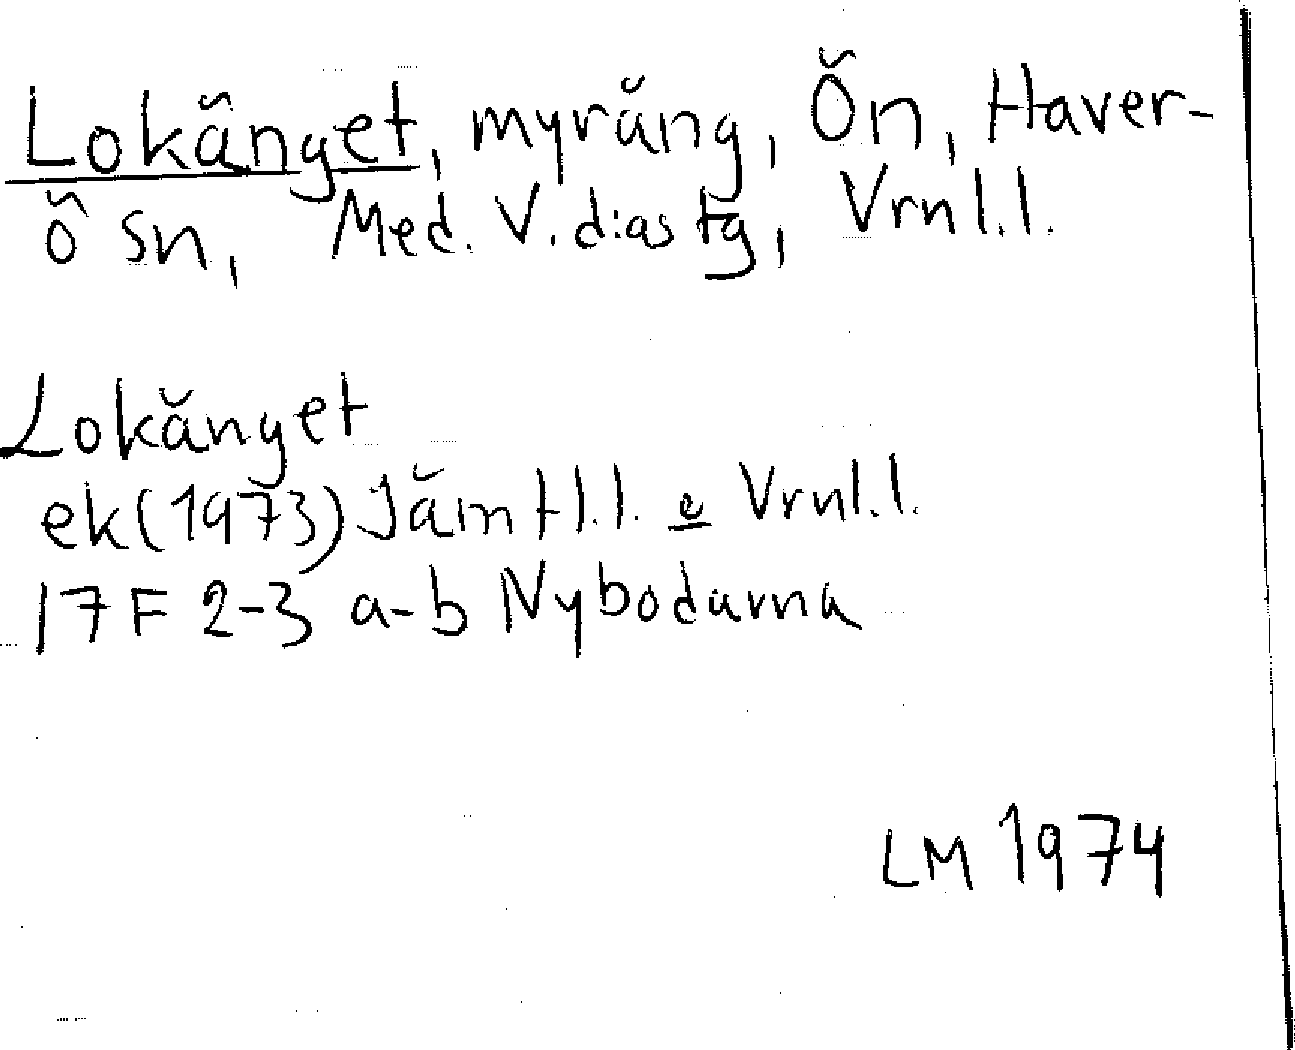 Lokänget, myräng, Ön, Haver-
ö sn, Med. V. dias tg, Vrnl.l.
Lokänget
ek(1973) Jämtl.l. e Vrnl.l.
17F 2-3 a-b Nybodarna
LM 1974